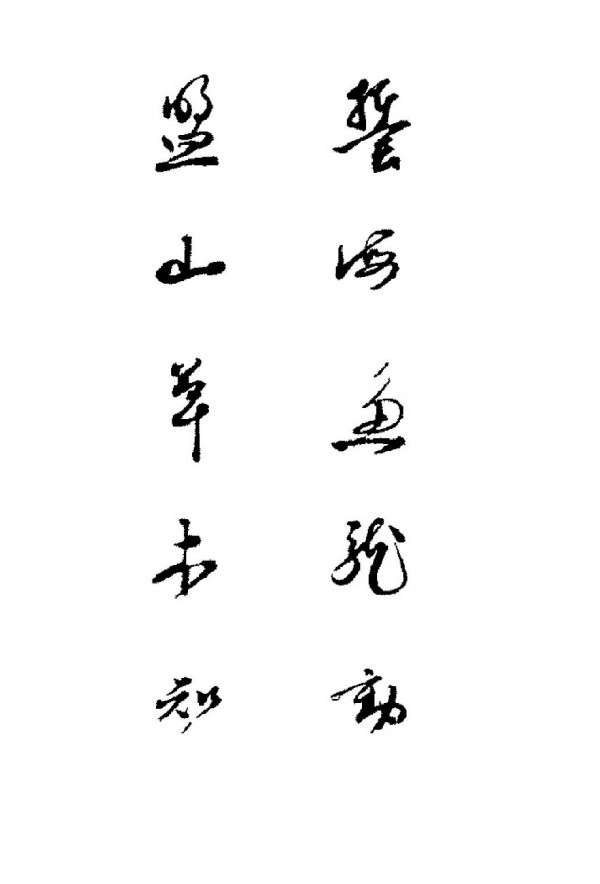 誓海魚龍動
盟山草木知